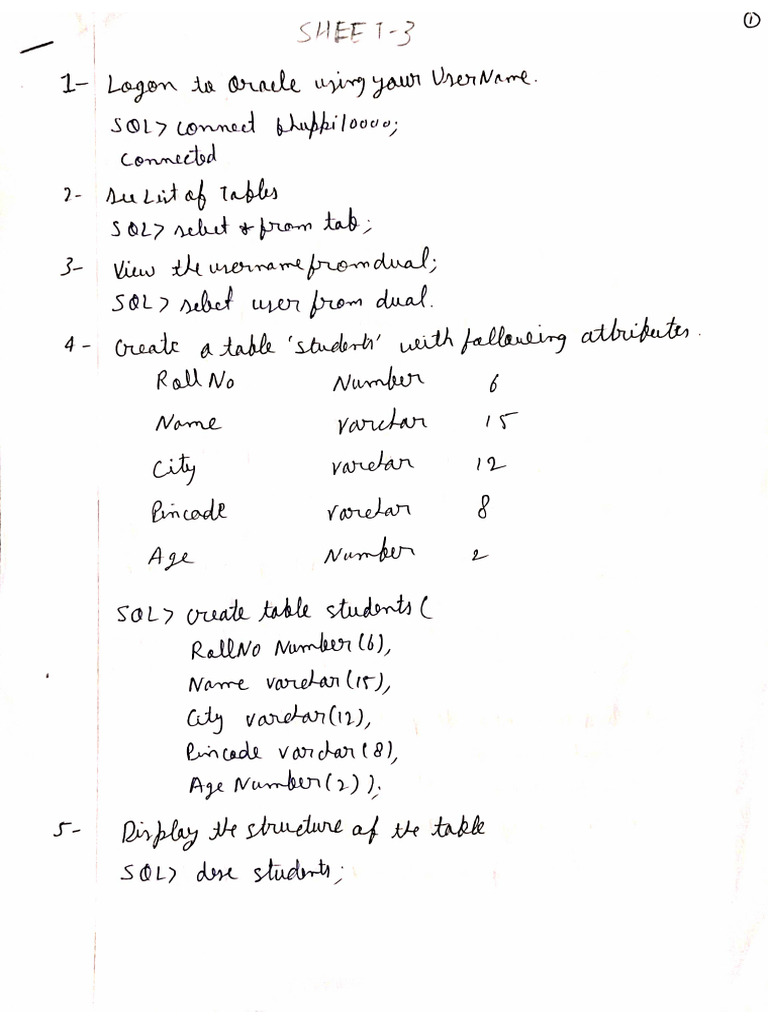 ①
SHEET-3
1- Logon to Oracle using your UserName.
SQL> connect bhuppi10000;
Connected
2- See List of Tables
SQL> select * from tab;
3- View the username from dual;
SQL> select user from dual.
4- Create a table 'students' with following attributes.
Roll No Number 6
Name varchar 15
City varchar 12
Pincode varchar 8
Age Number 2
SQL> create table students(
RollNo Number(6),
Name varchar(15),
City varchar(12),
Pincode varchar(8),
Age Number(2));
5- Display the structure of the table
SQL> desc students;